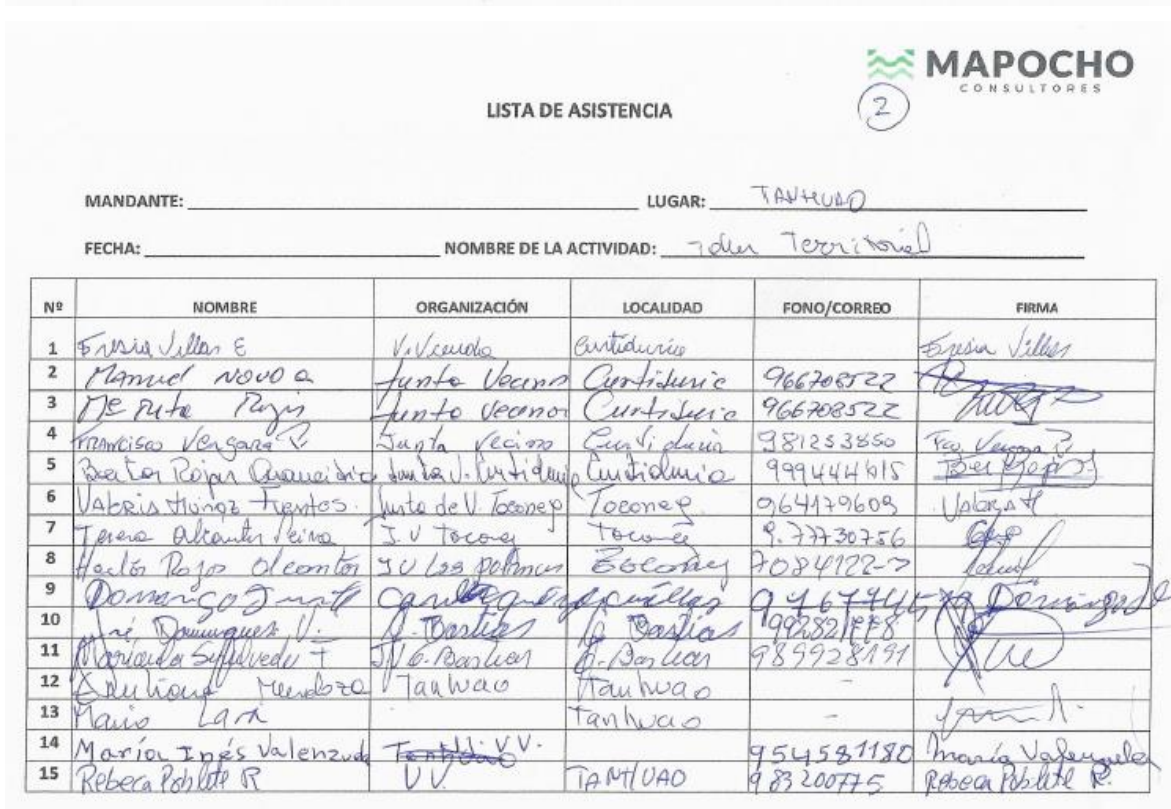 MAPOCHO
CONSULTORES
2
LISTA DE ASISTENCIA
MANDANTE: LUGAR: TANHUAO
FECHA: NOMBRE DE LA ACTIVIDAD: Taller Territorial
Nº NOMBRE ORGANIZACIÓN LOCALIDAD FONO/CORREO FIRMA
1 Fresia Villar E Curtiduria Fresia Villar
2 Manuel Novoa Junta Vecinos Curtiduria 966708522
3 Mª Junta Vecinos Curtiduria 966708522
4 Francisco Vergara Junta Vecino Curtiduria 981253850 Fco. Vergara
5 Rojas Junta V. Curtiduria Curtiduria
6 Muñoz Fuentes. Junta de V. Toconey Toconey 964179609
7 Teresa J. V Toconey Toconey 9.77730756
8 Hector Rojas JV Las Palmas Toconey
9 Domingo
10 José Dominguez V. G. Bastias G. Bastias
11 Sepulveda JV G. Bastias G. Bastias 989928191
12 Mendoza Tanhuao Tanhuao -
13 Mario Lara Tanhuao -
14 María Inés Valenzuela VV. 954581180 María Valenzuela
15 Rebeca Poblete R VV TANHUAO 983200775 Rebeca Poblete R.